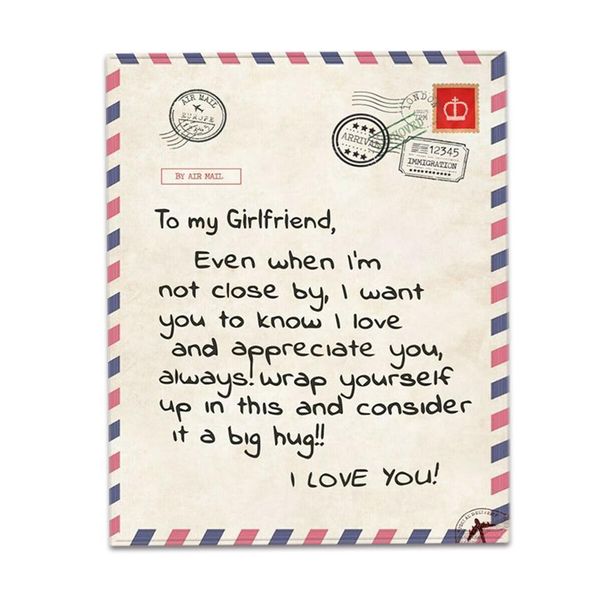 AIR MAIL
EUROPE
LONDON
ARRIVAL
12345
IMMIGRATION
BY AIR MAIL
To my Girlfriend,
Even when I'm
not close by, I want
you to know I love
and appreciate you,
always! Wrap yourself
up in this and consider
it a big hug!!
I LOVE YOU!